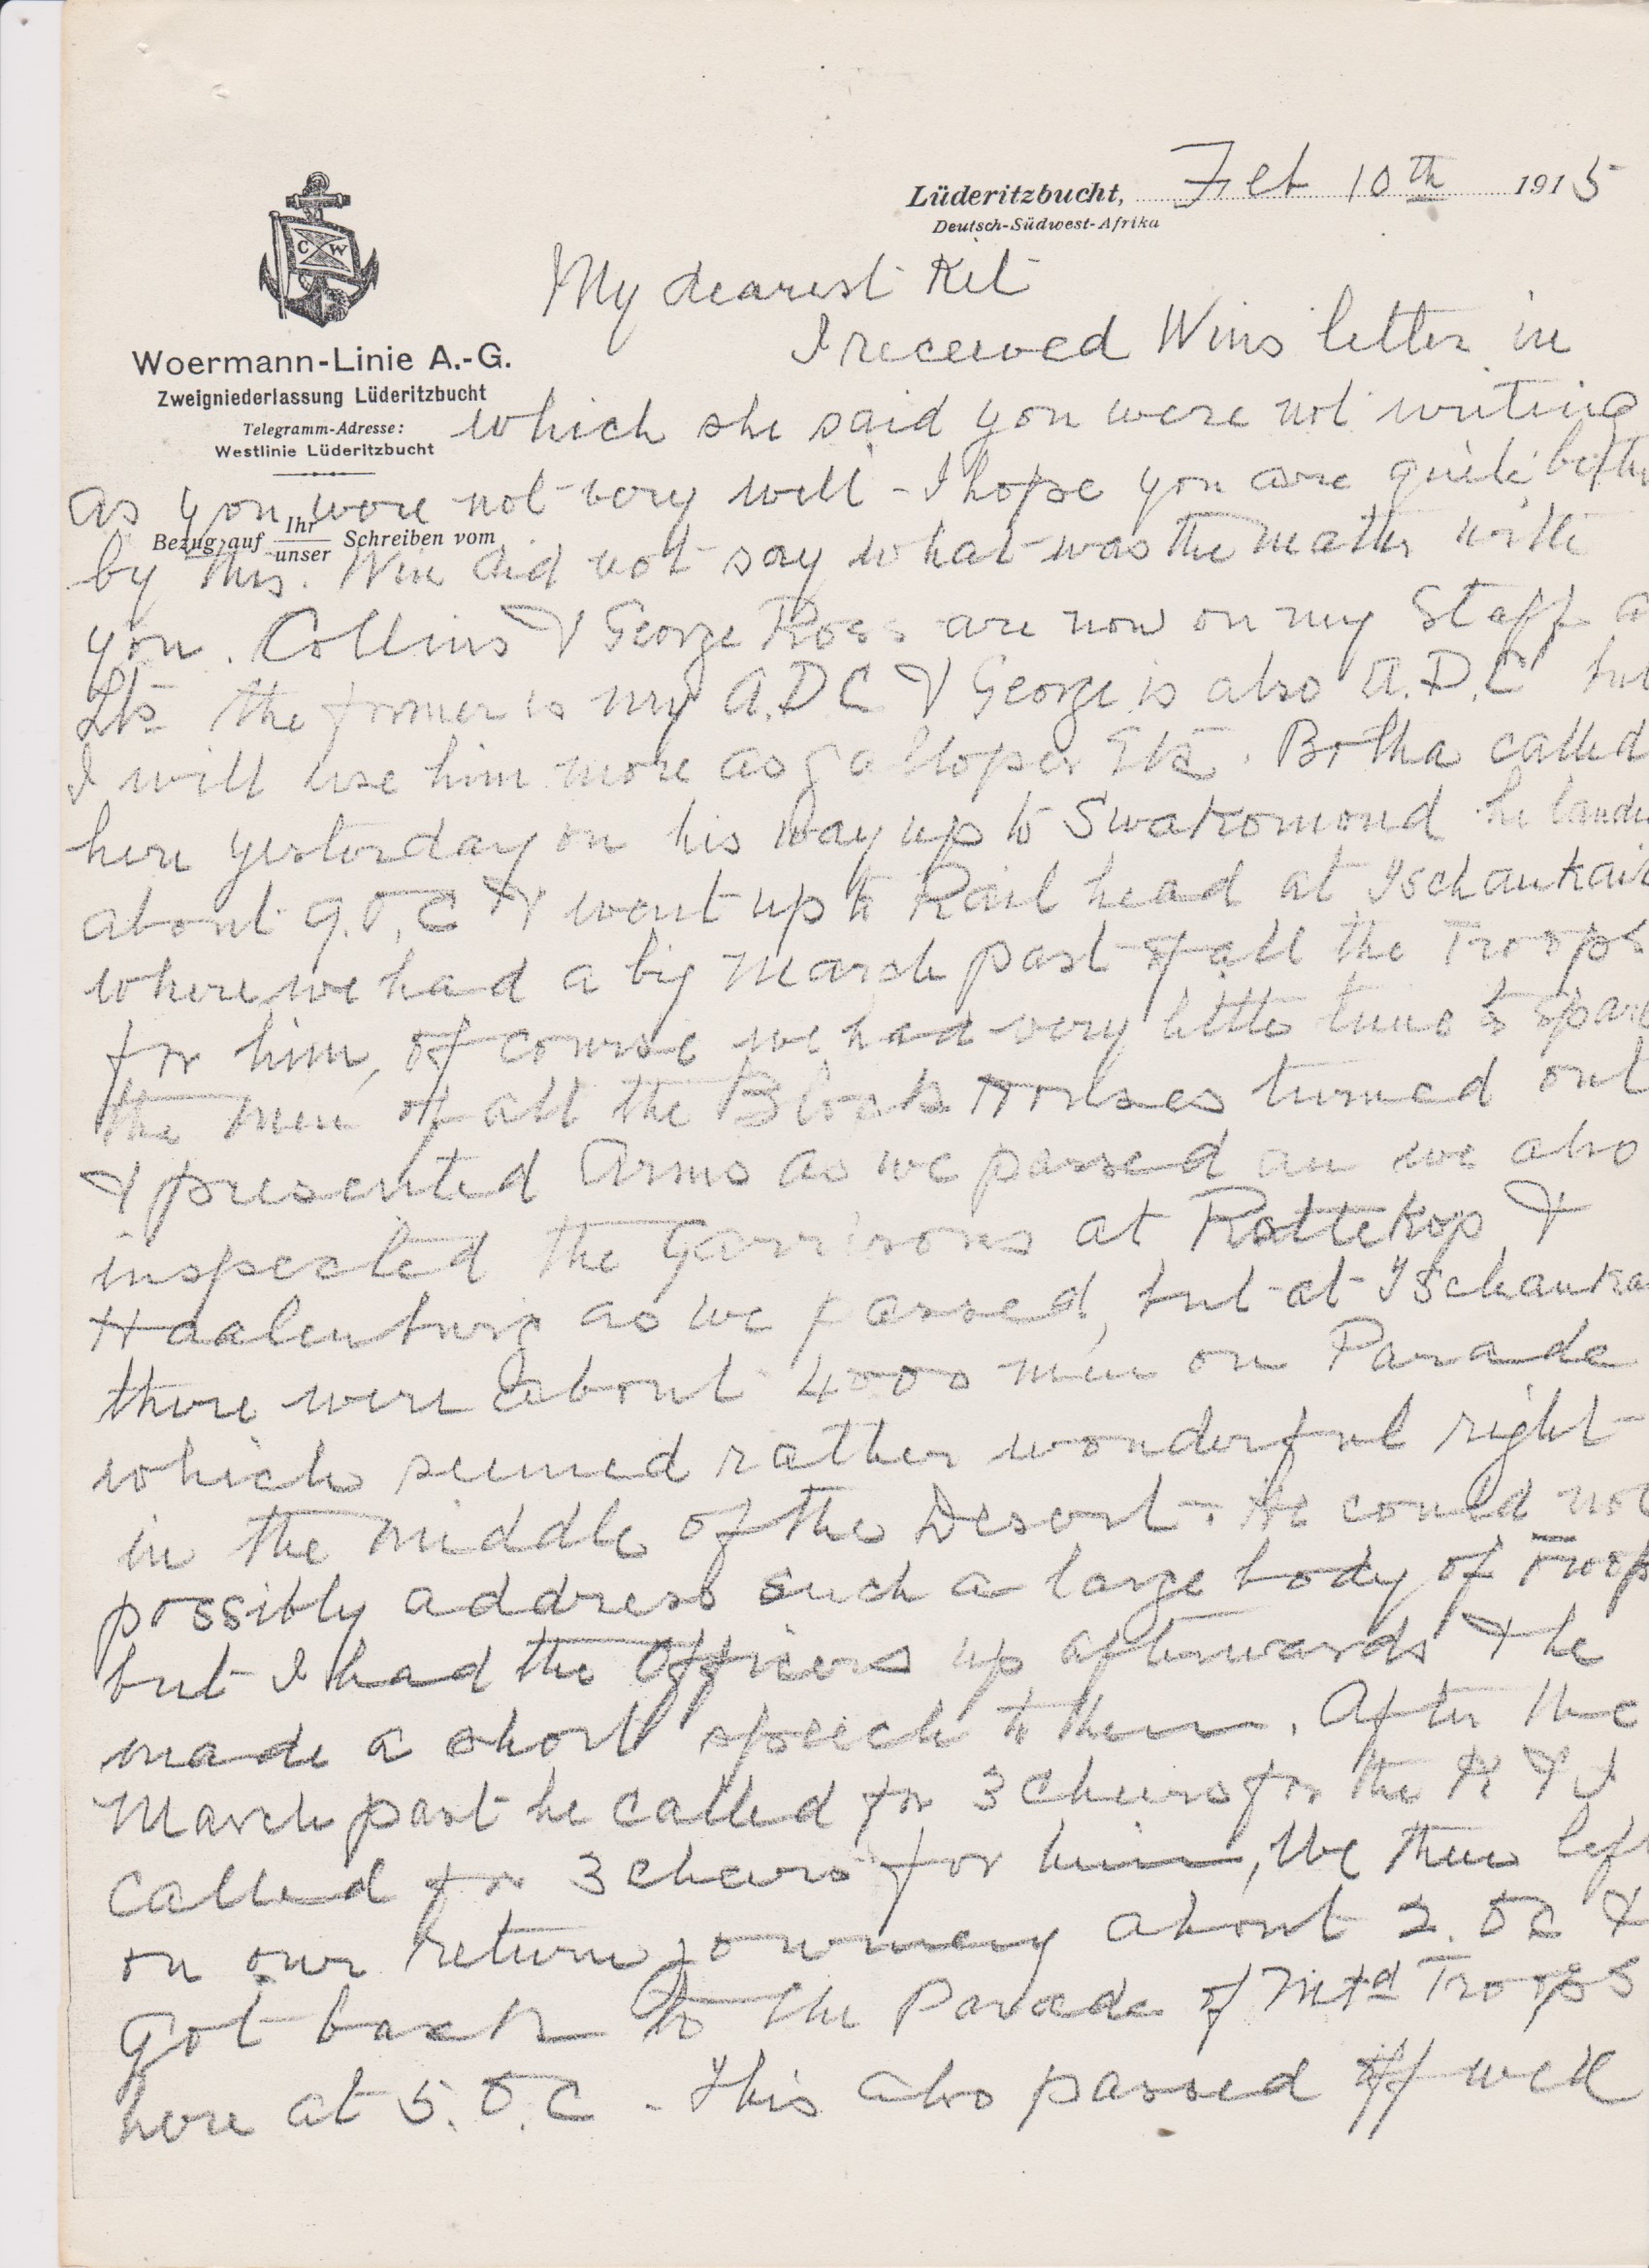 Lüderitzbucht, Feb 10th 1915
Deutsch-Südwest-Afrika
C W
Woermann-Linie A.-G.
Zweigniederlassung Lüderitzbucht
Telegramm-Adresse:
Westlinie Lüderitzbucht
Bezug auf Ihr/unser Schreiben vom
My dearest Kit
I received Wins letter in
which she said you were not writing
as you were not very well - I hope you are quite better
by this. Win did not say what was the matter with
you. Collins & George Ross are now on my Staff a
Lts the former is my A.D.C & George is also A.D.C but
I will use him more as galloper Etc. Botha called
here yesterday on his way up to Swakomond he lande
about 9.O.C & went up to Rail head at Tschaukaib
where we had a big March past of all the Troops
for him, of course we had very little time to spare
the men of all the Block Houses turned out
& presented Arms as we passed an we also
inspected the Garrisons at Rottekop &
Haalenburg as we passed, but at Tschauka
there were about 4000 men on Parade
which seemed rather wonderful right
in the middle of the Desert. He could not
possibly address such a large body of Troops
but I had the Officers up afterwards & he
made a short speech to them. After the
March past he called for 3 cheers for the K & I
called for 3 cheers for him, We then left
on our return journey about 2.OC &
got back to the Parade of Mtd Troops
here at 5.O.C - This also passed off well